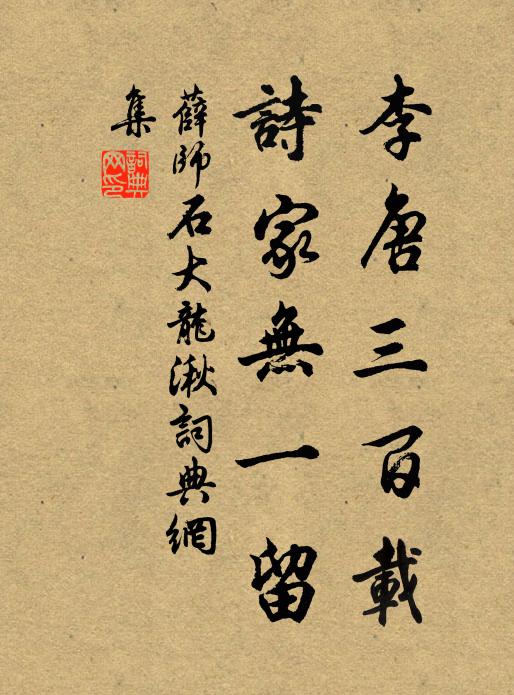 李唐三百載
詩家無一留
薛師石大龍湫詞典網
集
詞典
网印